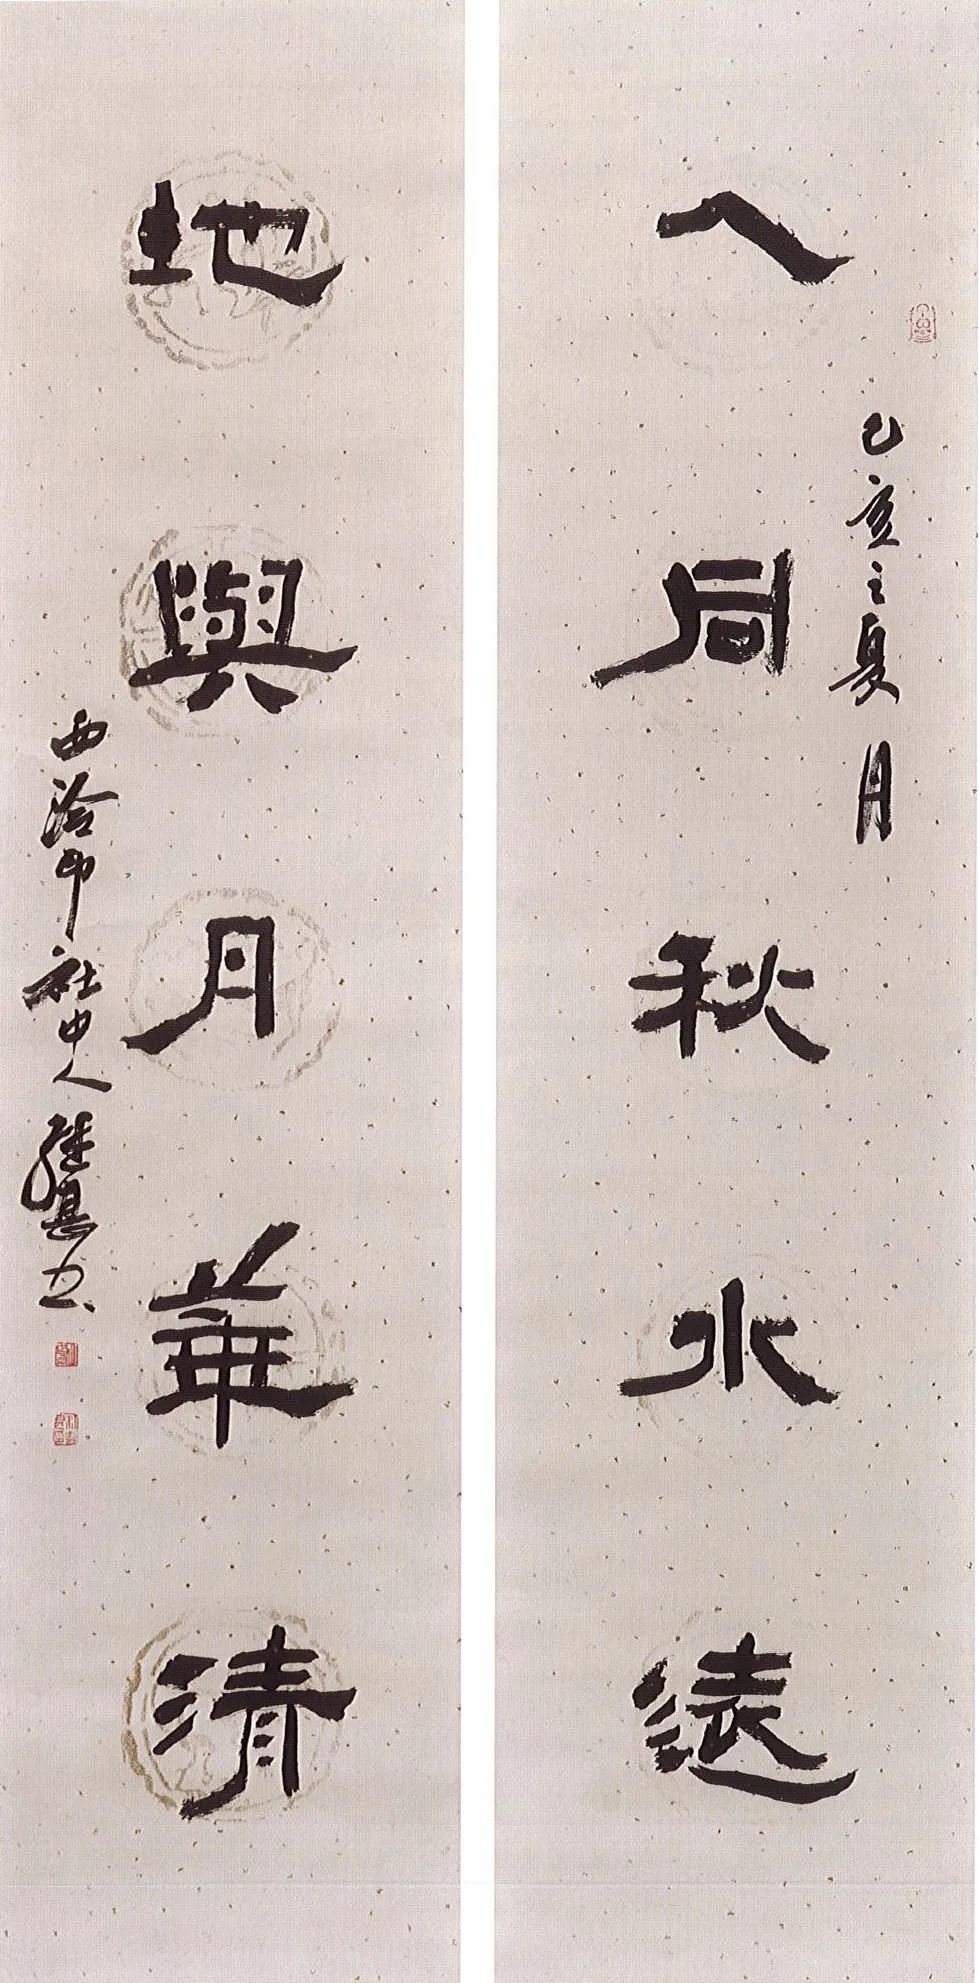 人同秋水遠
己亥之夏月
地與月華清
西泠印社中人